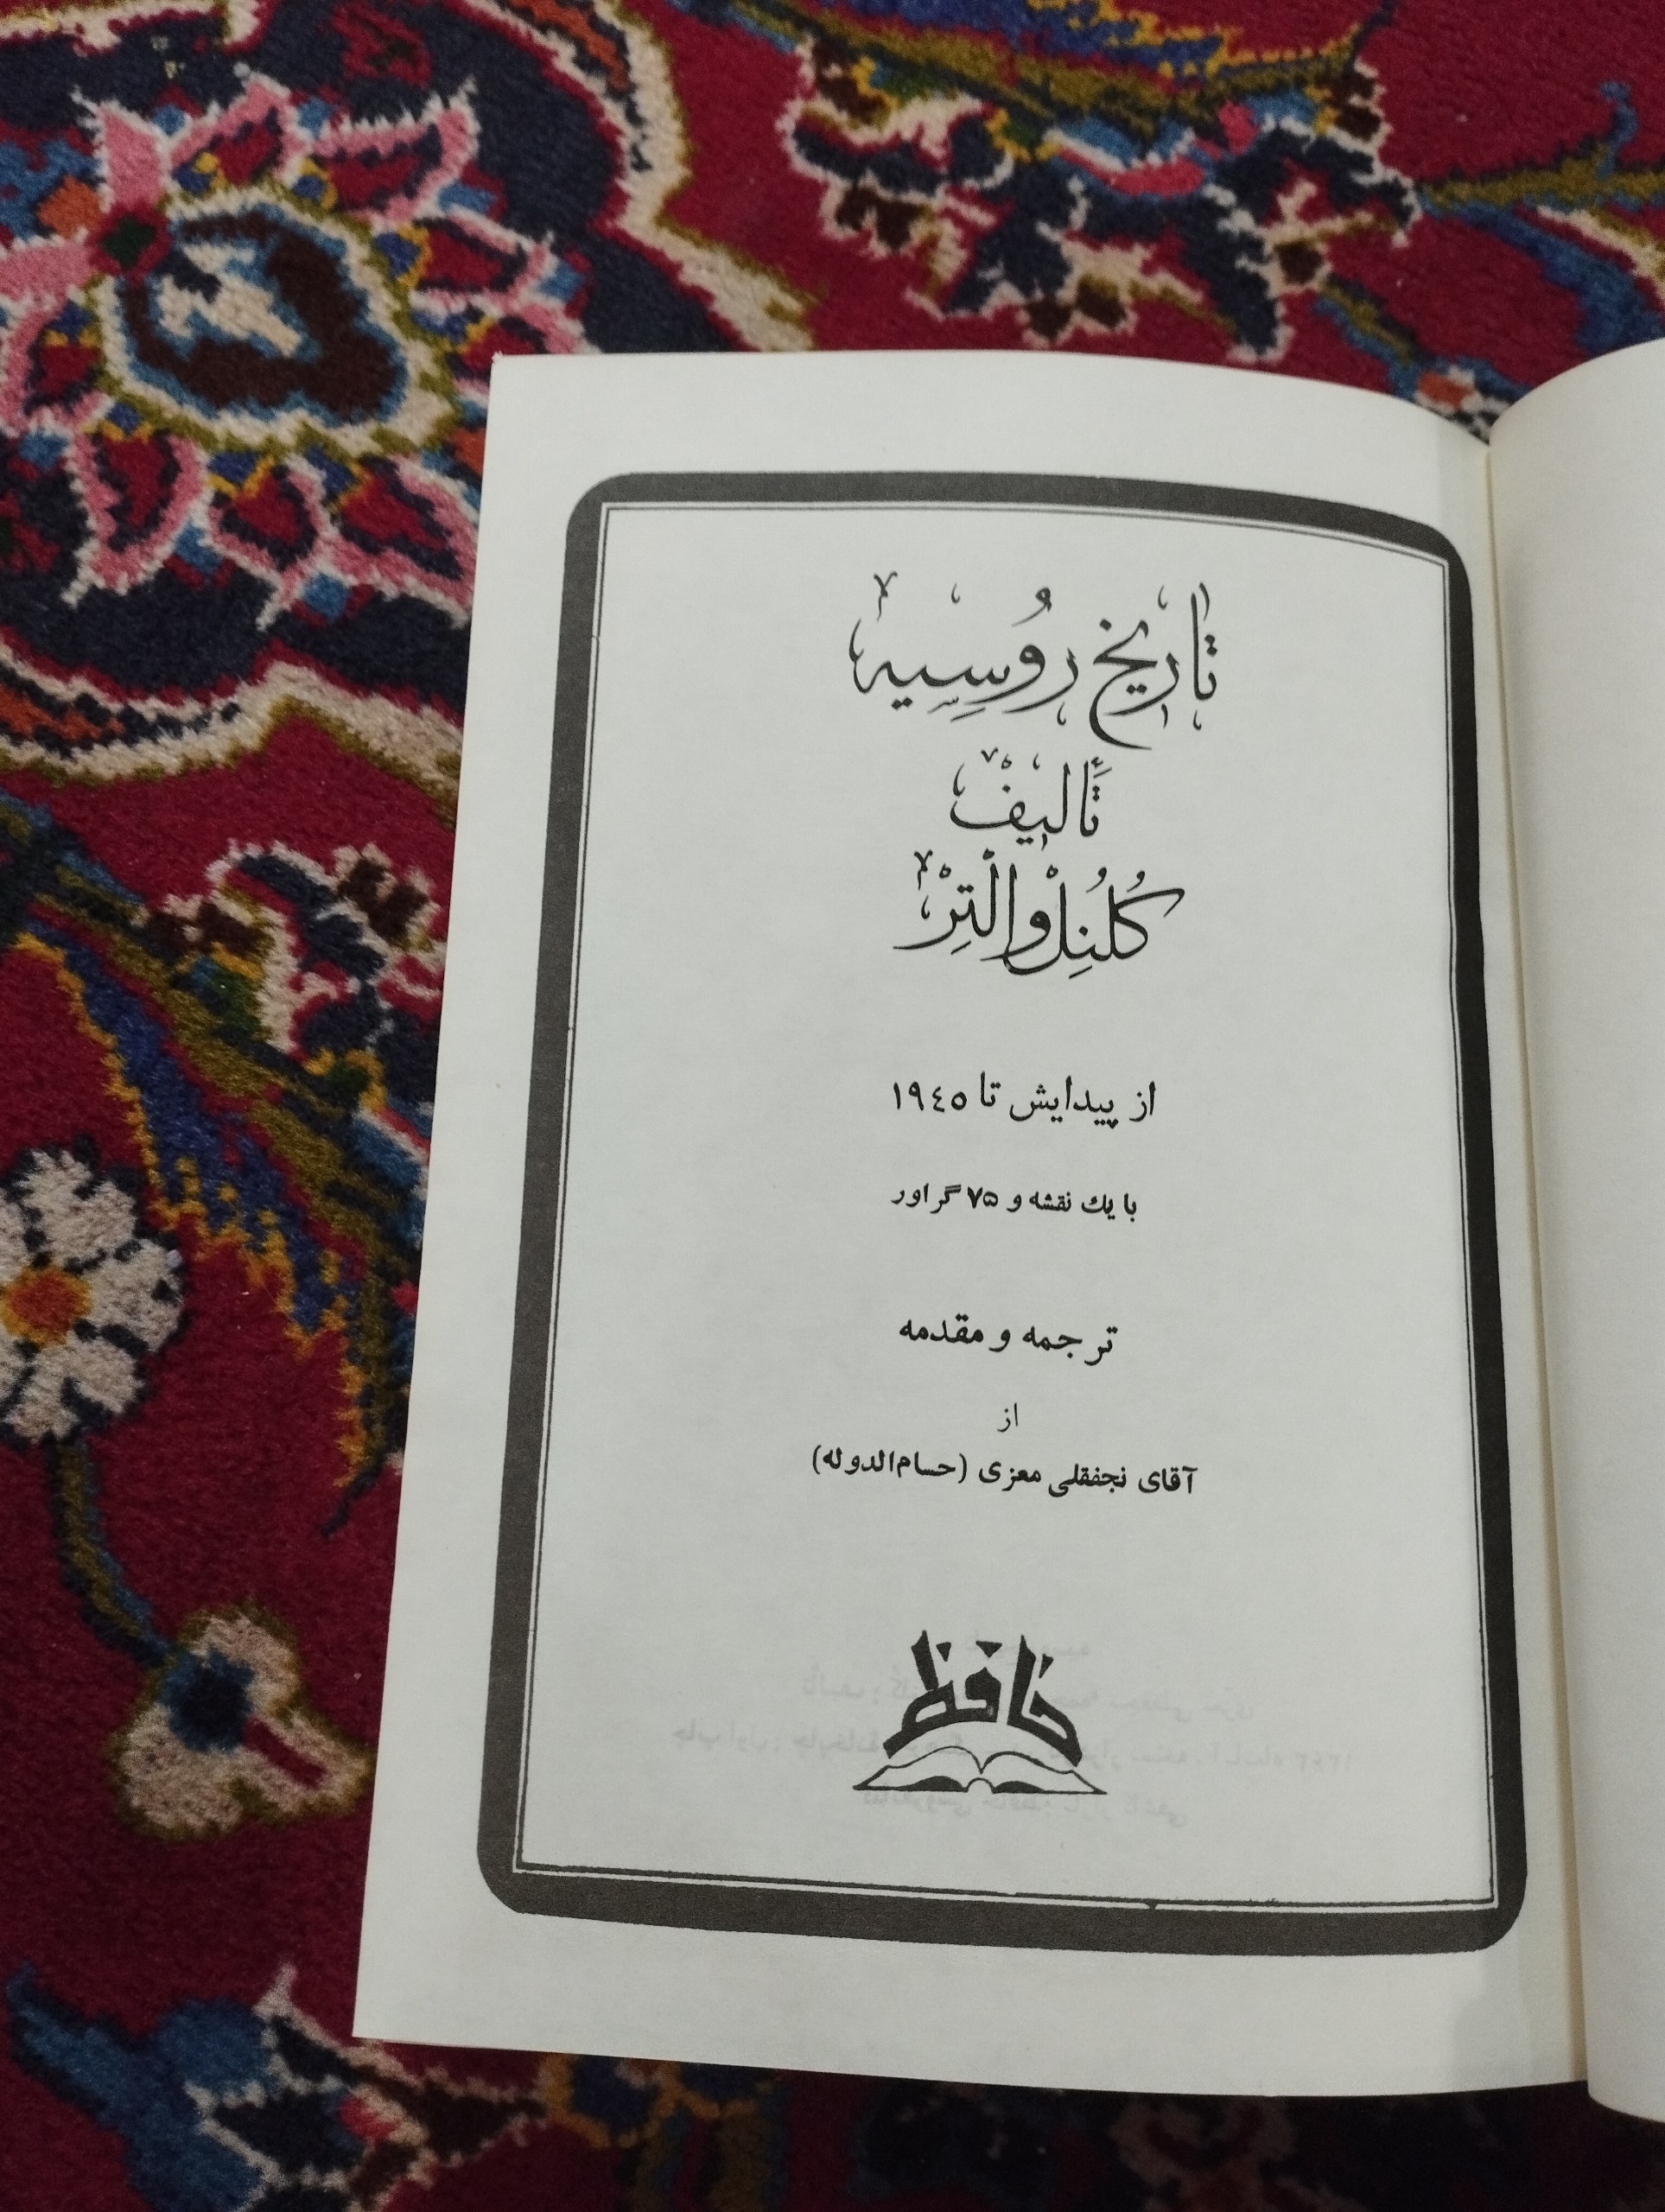 تاریخ روسیه
تألیف
کلنل والتر
از پیدایش تا ١٩٤٥
با یك نقشه و ۷۵ گراور
ترجمه و مقدمه
از
آقای نجفقلی معزی (حسام‌الدوله)
حافظ